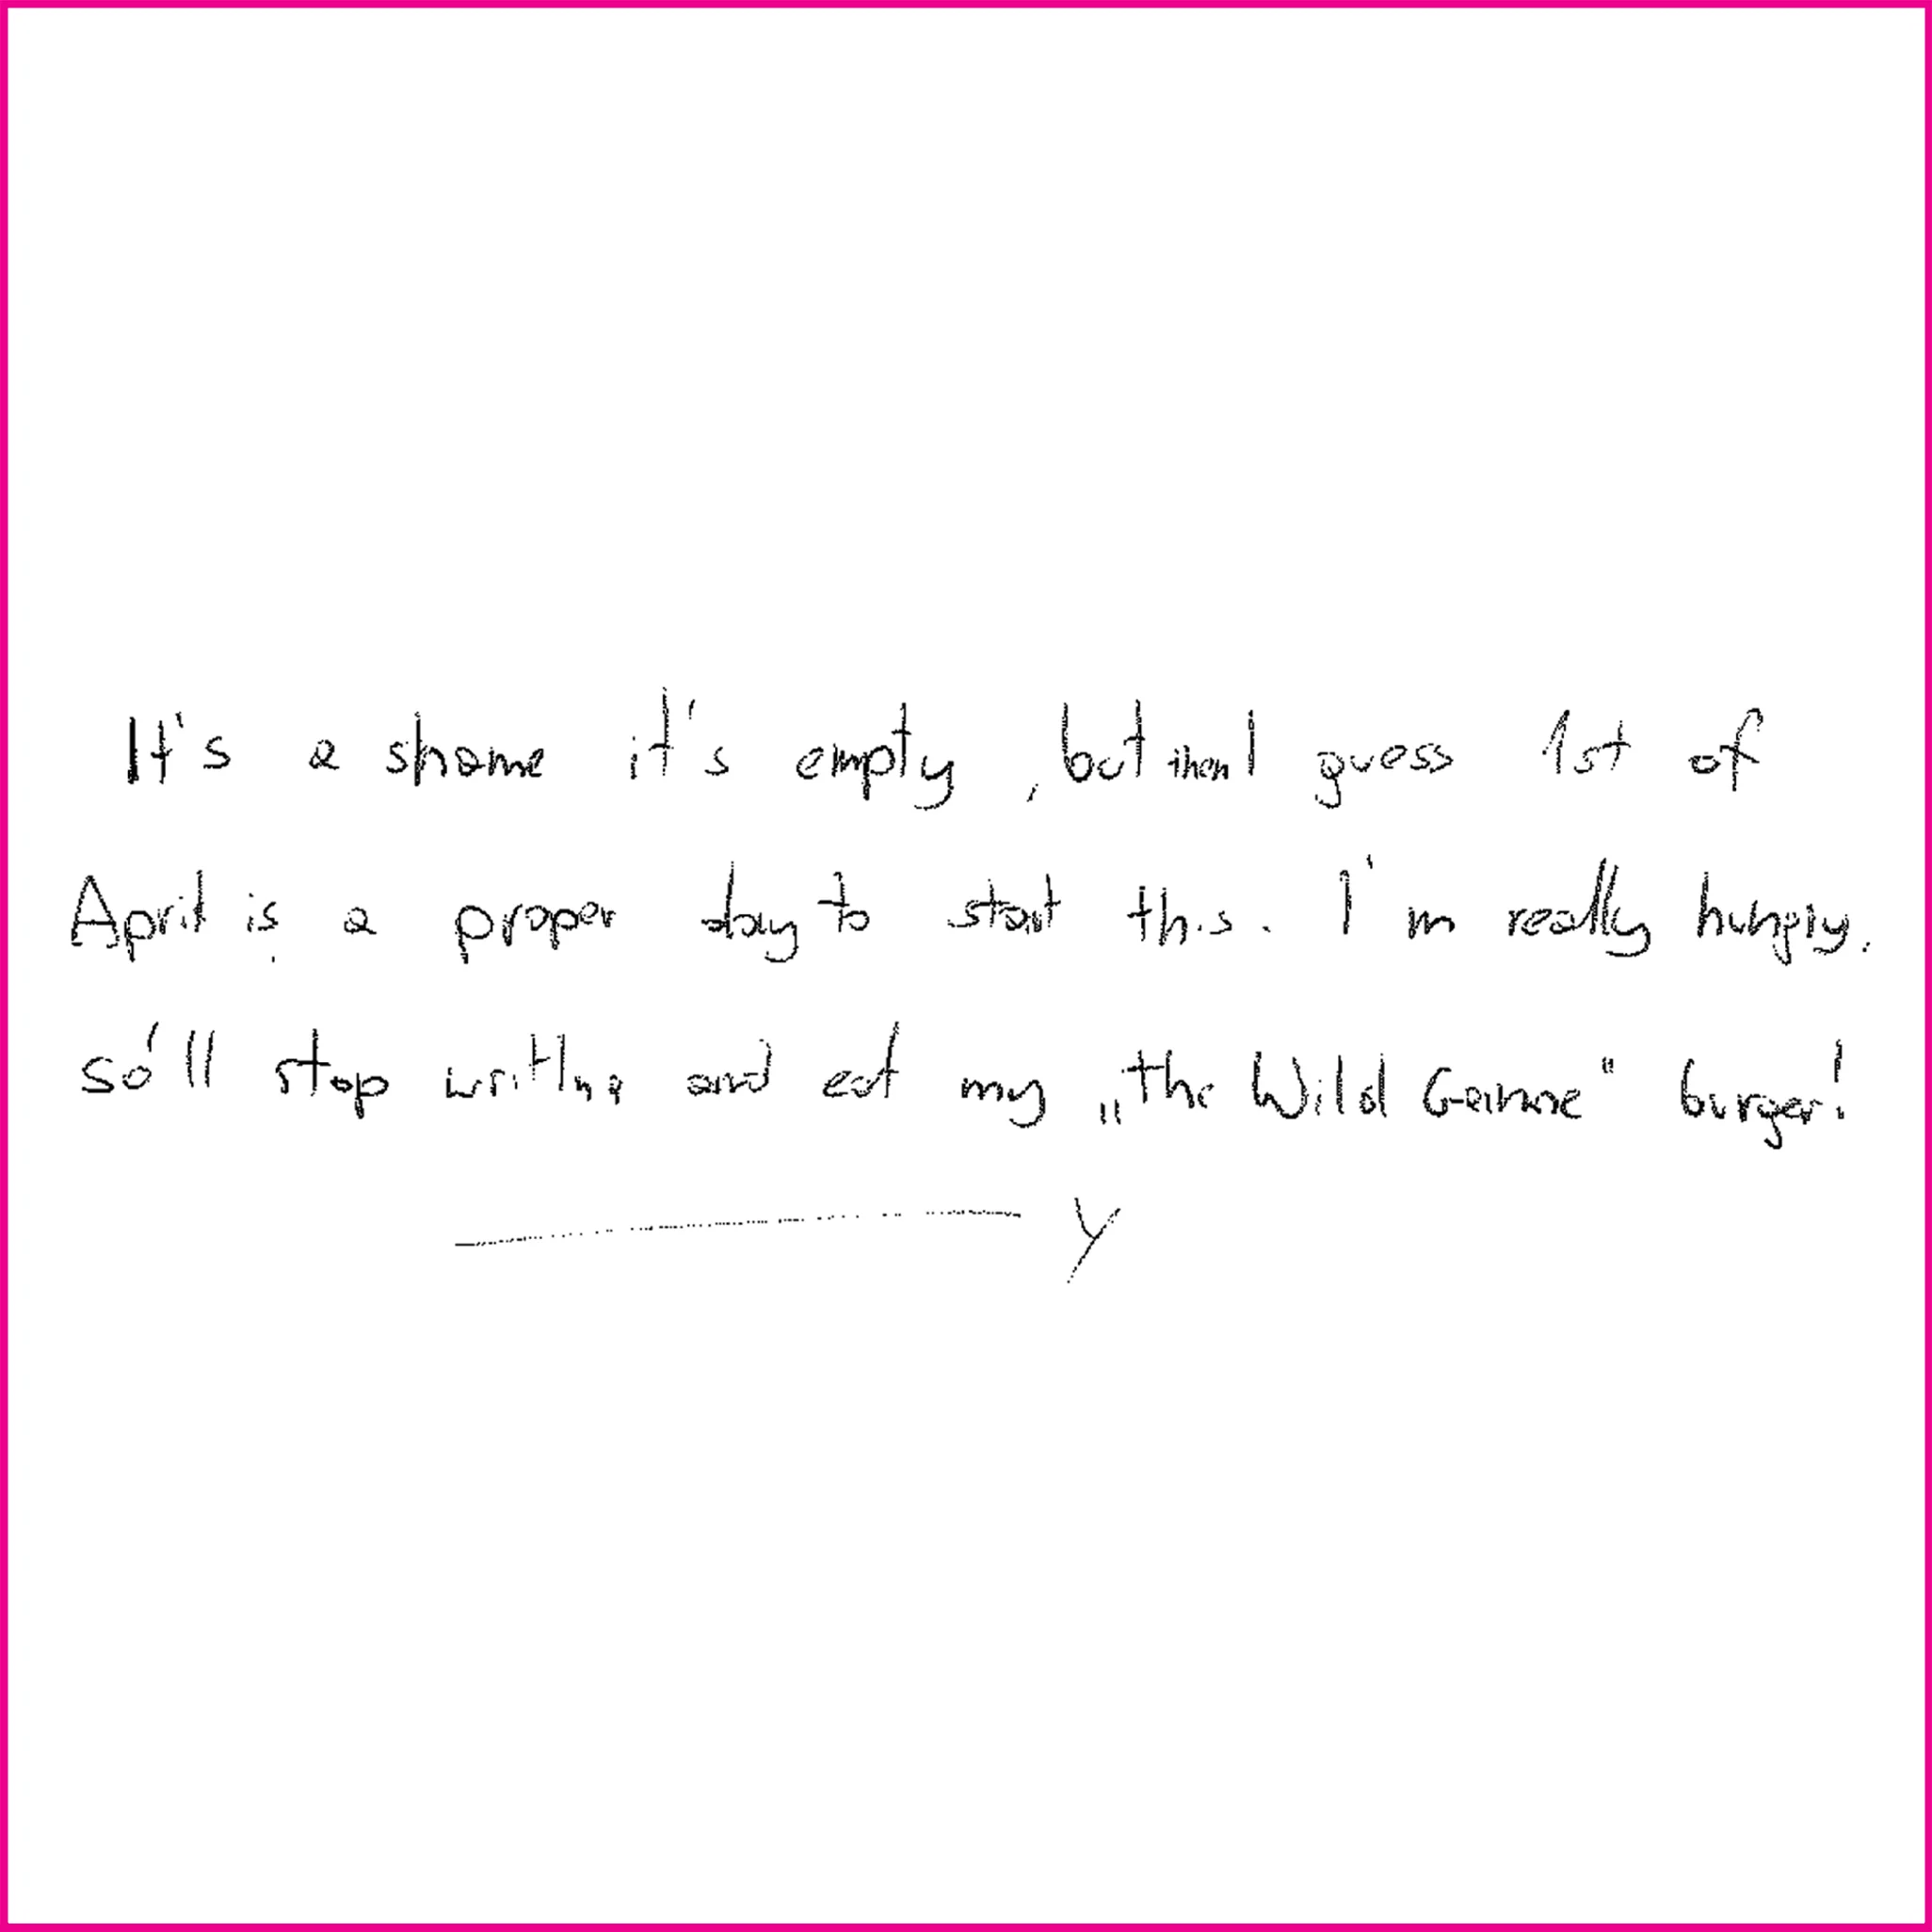 It's a shame it's empty, but then I guess 1st of
April is a proper day to start this. I'm really hungry.
so'll stop writing and eat my „the Wild Genuine" burger!
Y